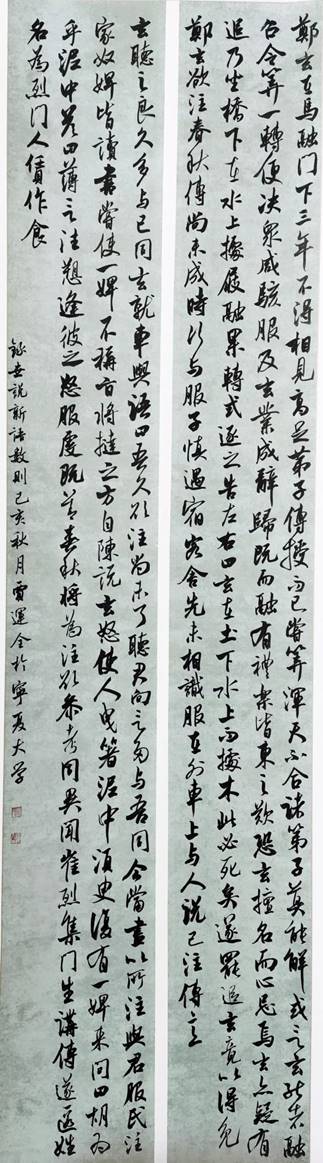 鄭玄在馬融門下三年不得相見高足弟子傳授而已嘗筭渾天不合諸弟子莫能解或言玄能者融
召令筭一轉便決衆咸駭服及玄業成辭歸既而融有禮樂皆東之歎恐玄擅名而心忌焉玄亦疑有
追乃坐橋下在水上據屐融果轉式逐之告左右曰玄在土下水上而據木此必死矣遂罷追玄竟以得免
鄭玄欲注春秋傳尚未成時行與服子慎遇宿客舍先未相識服在外車上與人說己注傳意
玄聽之良久多與己同玄就車與語曰吾久欲注尚未了聽君向言多與吾同今當盡以所注與君服氏注
家奴婢皆讀書嘗使一婢不稱旨將撻之方自陳說玄怒使人曳箸泥中須臾復有一婢來問曰胡為
乎泥中答曰薄言往愬逢彼之怒服虔既善春秋將為注欲參考同異聞崔烈集門生講傳遂匿姓
名為烈門人賃作食
錄世說新語數則己亥秋月賈運全於寧夏大學